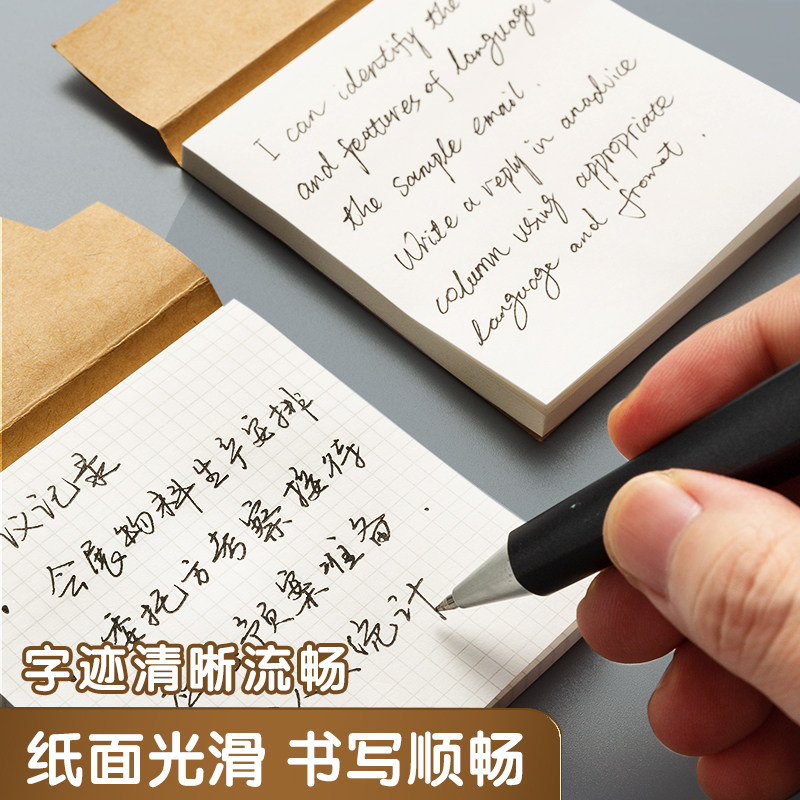 I can identify the
and features of language
the sample email.
Write a reply in anadvice
column using appropriate
language and fromat.
议记录
会展物料生产安排
委托方考察接待
预案准备
统计
字迹清晰流畅
纸面光滑 书写顺畅